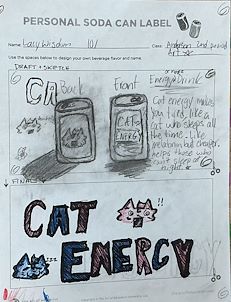 PERSONAL SODA CAN LABEL
Name: Lacy Wisdom 10/
Class: Anderson 2nd period
Art
Use the spaces below to design your own beverage flavor and name.
DRAFT + SKETCH
or future
Energy Drink
CA
Back
Front
CAT
ENERGY
Cat energy makes
you tired, like a
cat who sleeps all
the time. Like
melatonin but cheaper.
helps those who
can't sleep at
night.
FINAL
CAT
!!
ENERGY